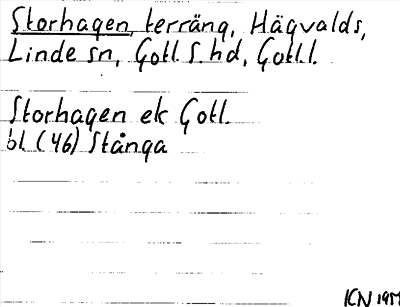 Storhagen, terräng, Hägvalds,
Linde sn, Gotl. S. hd, Gotl. l.
Storhagen ek Gotl.
bl (46) Stånga
ICN